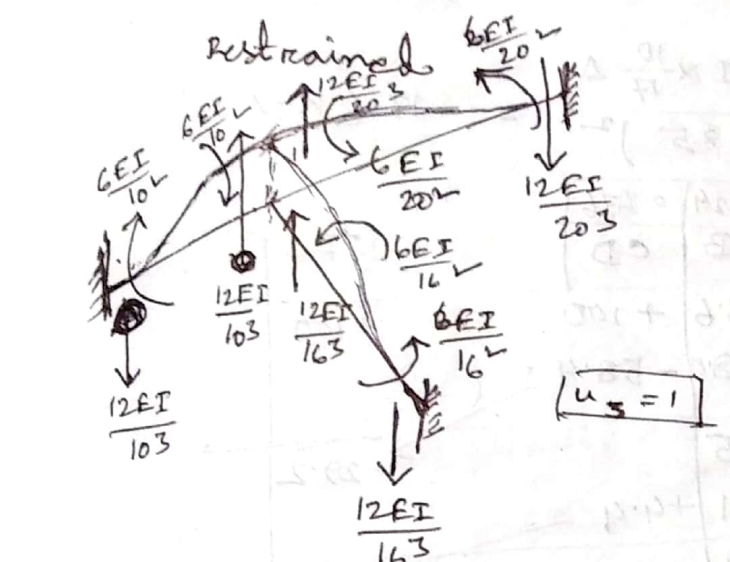 Restrained
6EI/20²
12EI/20³
6EI/10²
6EI/10²
6EI/20²
12EI/20³
6EI/16²
12EI/10³
12EI/16³
6EI/16²
12EI/10³
u₃ = 1
12EI/16³